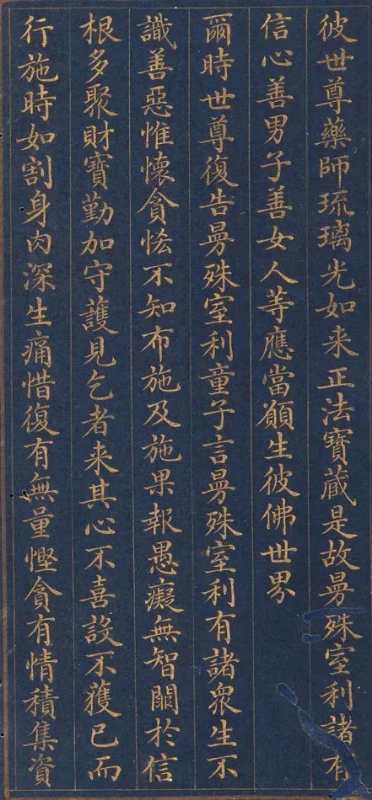 彼世尊藥師琉璃光如来正法寶蔵是故曼殊室利諸有
信心善男子善女人等應當願生彼佛世界
爾時世尊復告曼殊室利童子言曼殊室利有諸衆生不
識善惡惟懐貪恡不知布施及施果報愚癡無智闕於信
根多聚財寶勤加守護見乞者来其心不喜設不獲已而
行施時如割身肉深生痛惜復有無量慳貪有情積集資